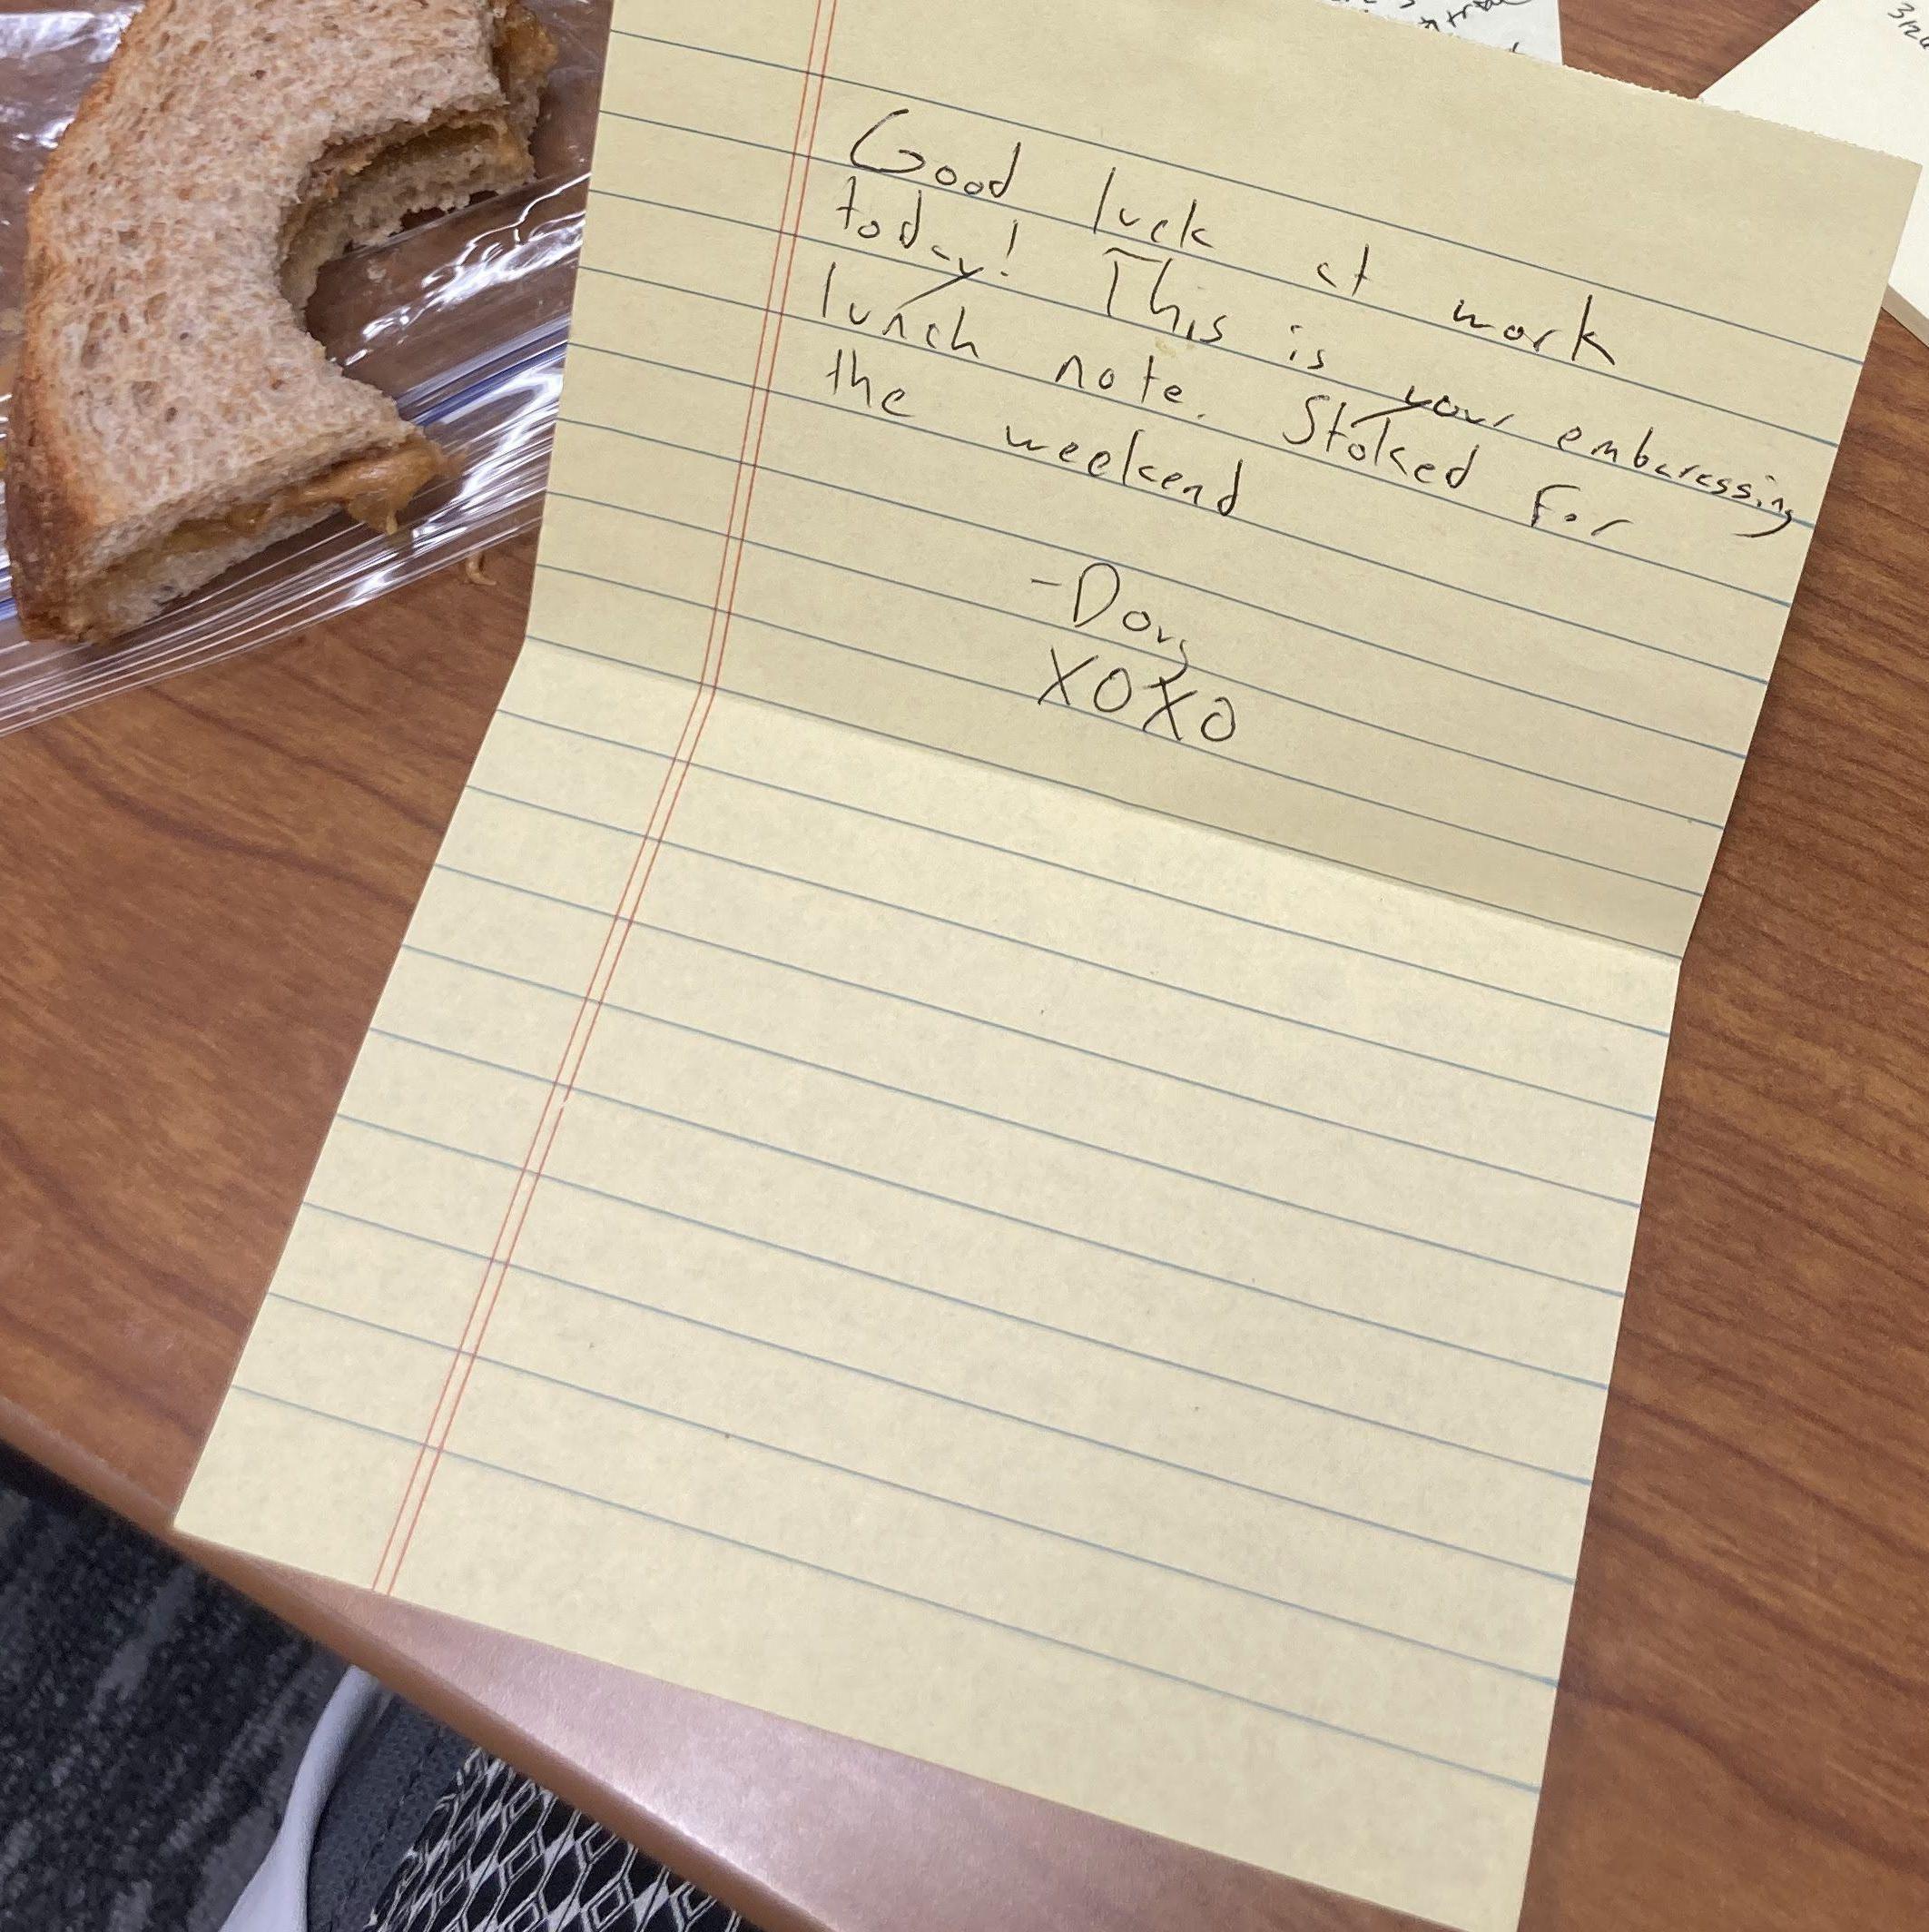 Good luck at work
today! This is your embaressing
lunch note. Stoked for
the weekend
-Doug
XOXO